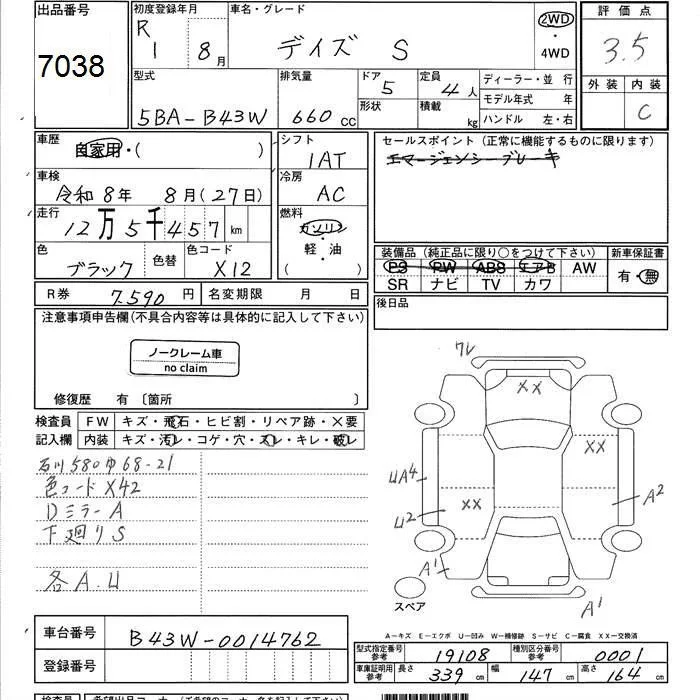 出品番号
7038
初度登録年月
R 1 8月
車名・グレード
デイズ S
2WD
・
4WD
評価点
3.5
外装 内装
C
型式
5BA-B43W
排気量
660 cc
ドア
5
形状
定員
4人
積載
kg
ディーラー・並 行
モデル年式 年
ハンドル 左・右
車歴
自家用・( )
車検
令和 8年 8月(27日)
走行
12万5千457km
色
ブラック
色替
色コード
X12
シフト
1AT
冷房
AC
燃料
ガソリン
軽・油
( )
セールスポイント (正常に機能するものに限ります)
エマージェンシーブレーキ
装備品 (純正品に限り○をつけて下さい)
PS PW ABS エアB AW
SR ナビ TV カワ
新車保証書
有・無
後日品
R券 7.590円
名変期限 月 日
注意事項申告欄(不具合内容等は具体的に記入して下さい)
ノークレーム車
no claim
修復歴 有 〔箇所 〕
検査員
記入欄
FW キズ・飛石・ヒビ割・リペア跡・×要
内装 キズ・汚レ・コゲ・穴・スレ・キレ・破レ
石川580ゆ68-21
色コードX42
Dミラー A
下廻り S
各 A.U
ワレ
XX
XX
UA4
XX
U2
A2
A1
A1
スペア
A-キズ E-エクボ U-凹み W-補修跡 S-サビ C-腐食 XX-交換済
車台番号
B43W-0014762
登録番号
型式指定番号
参考
19108
種別区分番号
参考
0001
車庫証明用
参考
長さ 339 cm
幅 147 cm
高さ 164 cm